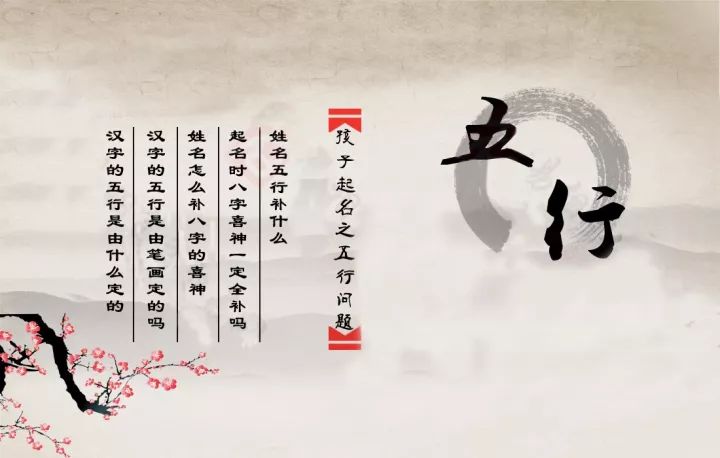 五行
孩子起名之五行问题
姓名五行补什么
起名时八字喜神一定全补吗
姓名怎么补八字的喜神
汉字的五行是由笔画定的吗
汉字的五行是由什么定的